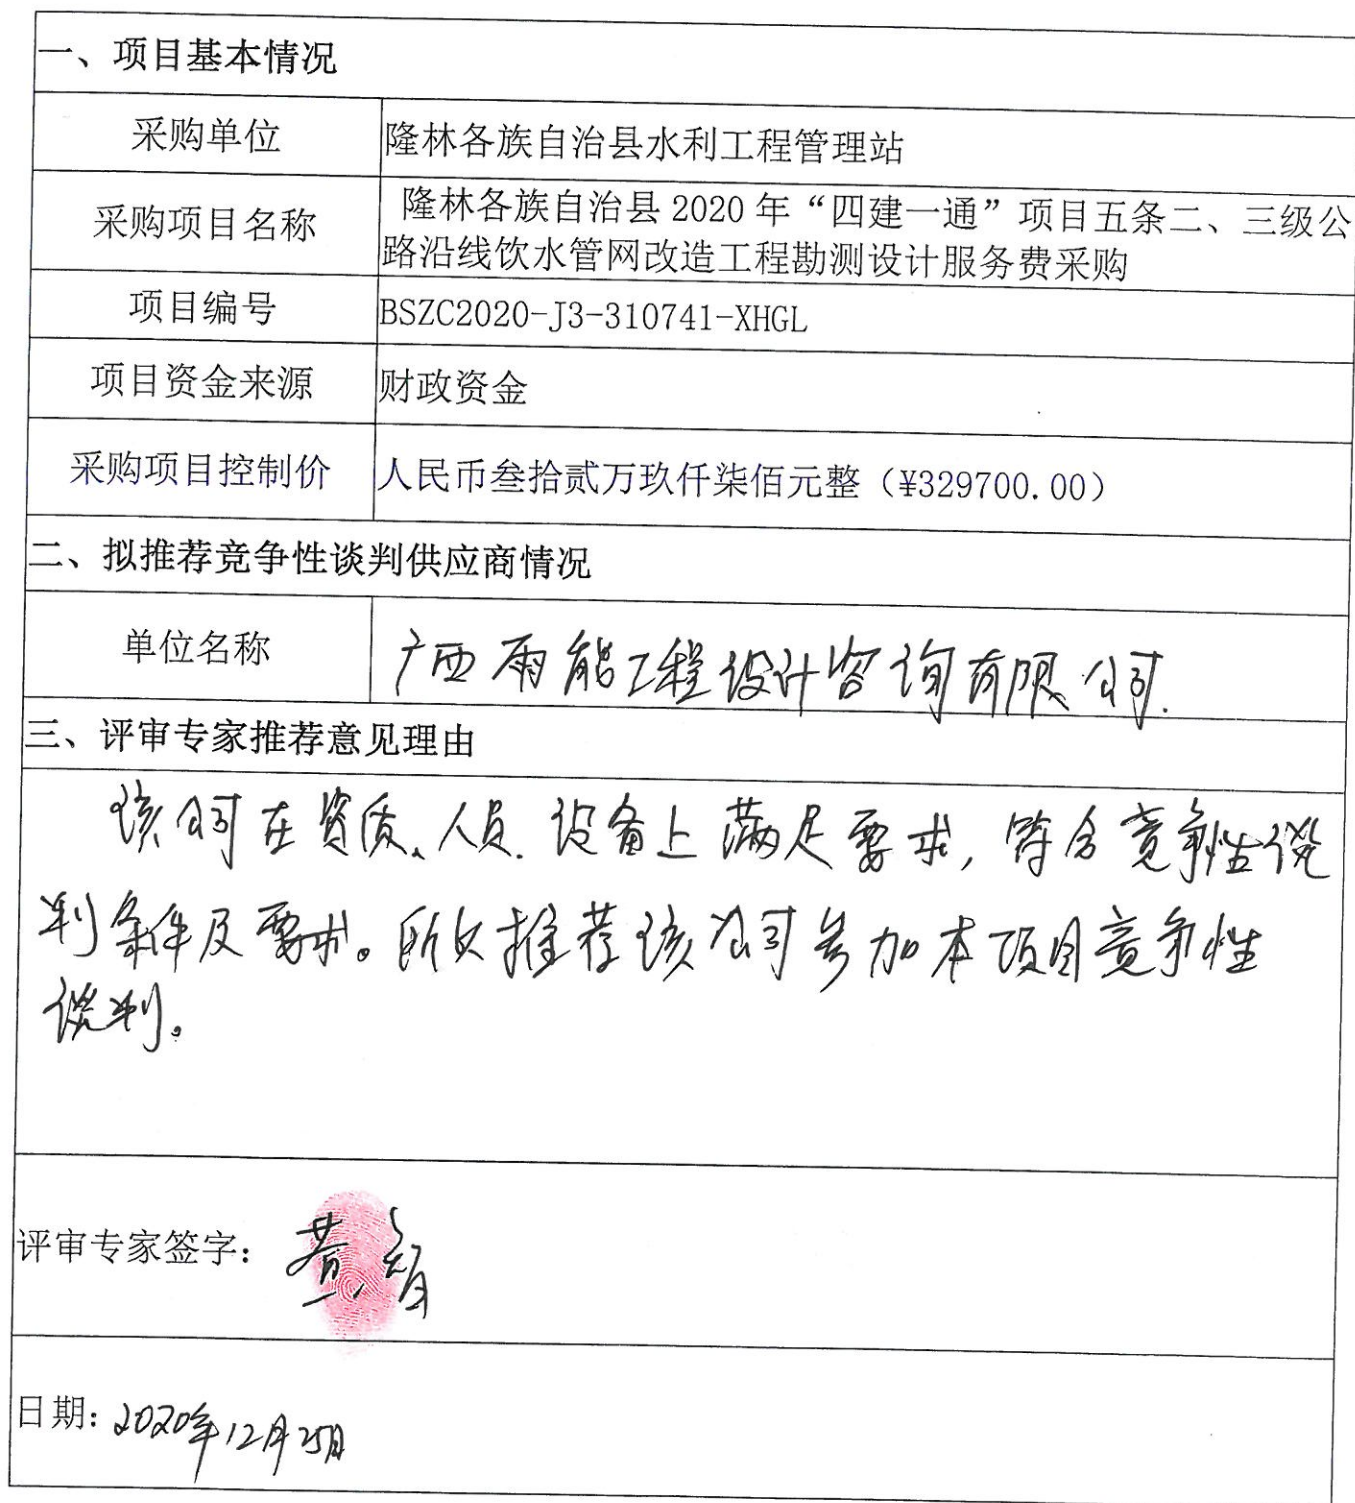 一、项目基本情况
采购单位
隆林各族自治县水利工程管理站
采购项目名称
隆林各族自治县 2020 年“四建一通”项目五条二、三级公
路沿线饮水管网改造工程勘测设计服务费采购
项目编号
BSZC2020-J3-310741-XHGL
项目资金来源
财政资金
采购项目控制价
人民币叁拾贰万玖仟柒佰元整（¥329700.00）
二、拟推荐竞争性谈判供应商情况
单位名称
广西雨能工程设计咨询有限公司.
三、评审专家推荐意见理由
该公司在资质、人员.设备上满足要求,符合竞争性谈
判条件及要求。所以推荐该公司参加本项目竞争性
谈判。
评审专家签字：黄
日期：2020年12月25日